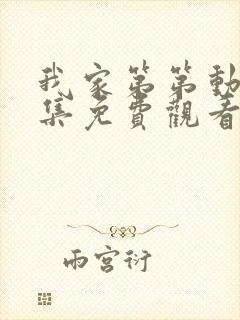 我家第第動
集免費觀看
雨宮衍